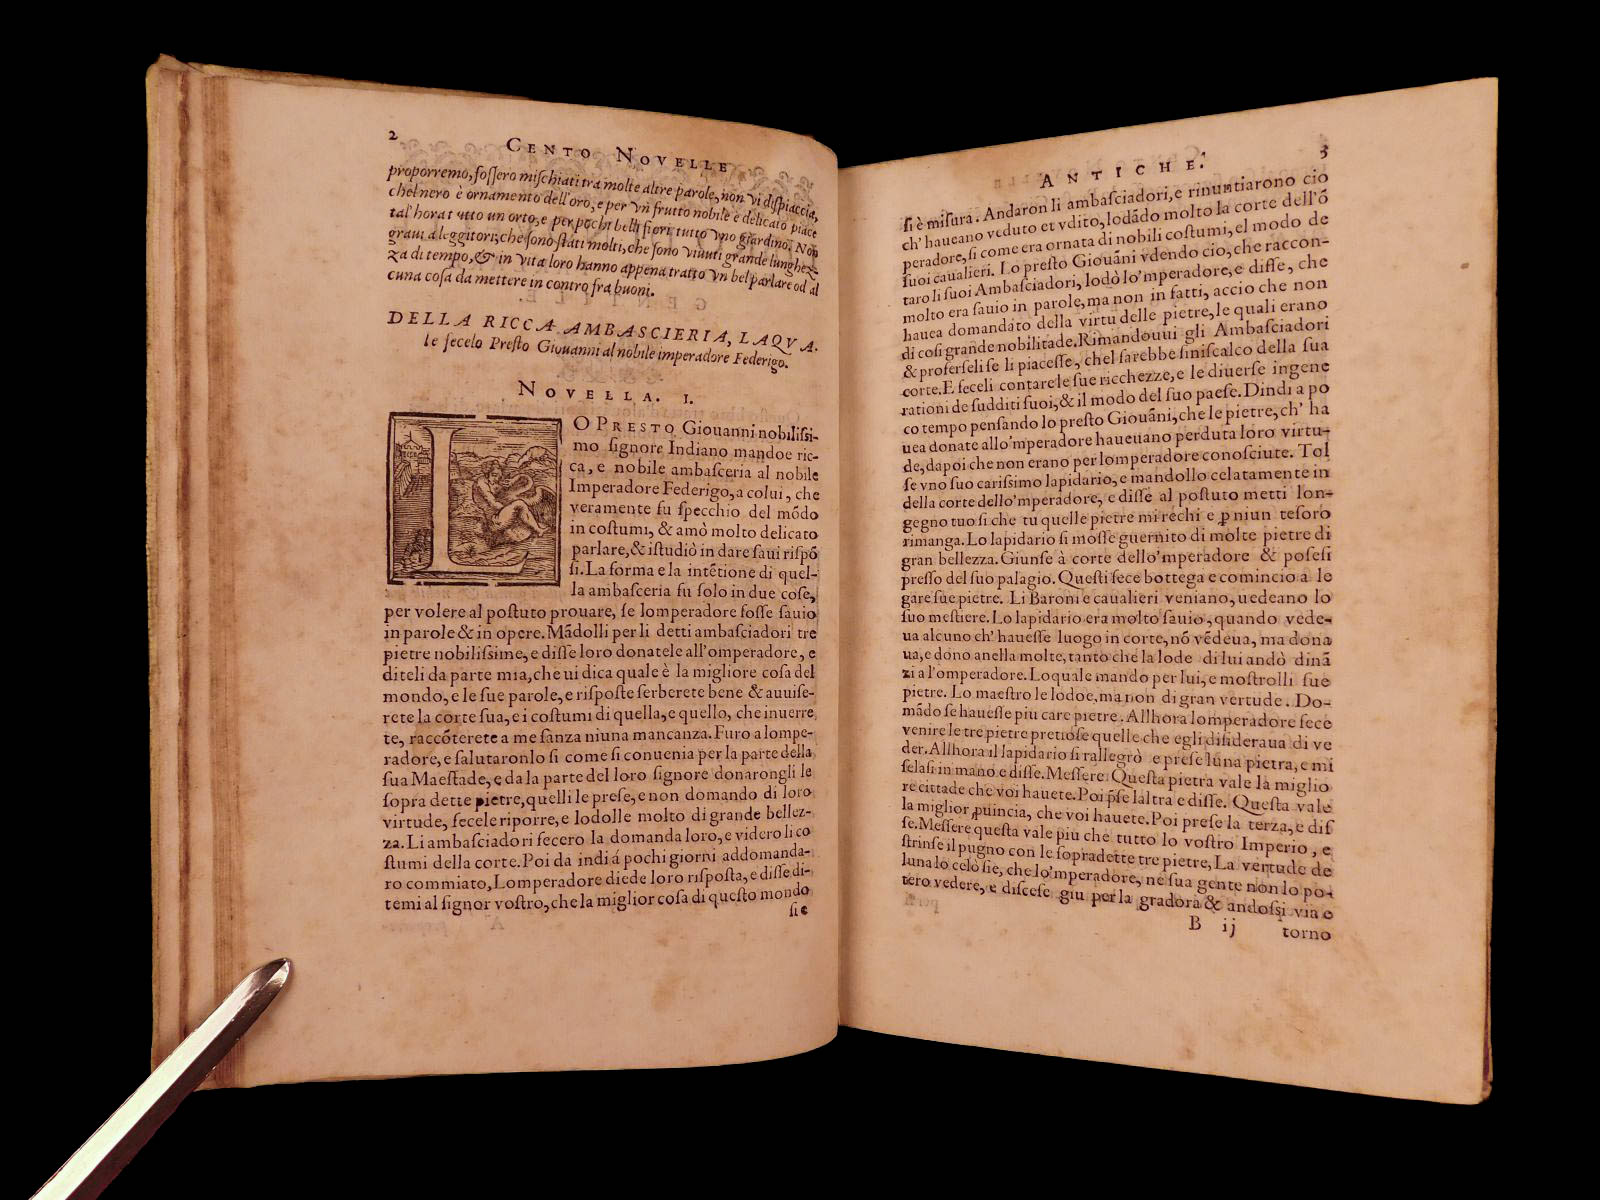 2
CENTO NOVELLE
proporremo, fossero mischiati tra molte altre parole, non vi dispiaccia,
chel nero è ornamento dell'oro, e per vn frutto nobile e delicato piace
tal'hora tutto un orto, e per pochi belli fiori tutto vno giardino. Non
graui a leggitori; che sono stati molti, che sono viuuti grande lunghez-
za di tempo, & in vita loro hanno appena tratto vn bel parlare od al
cuna cosa da mettere in contro fra buoni.
DELLA RICCA AMBASCIERIA, LAQVA-
le fecelo Presto Giouanni al nobile imperadore Federigo.
NOVELLA. I.
LO PRESTO Giouanni nobilissi-
mo signore Indiano mandoe ric-
ca, e nobile ambasceria al nobile
Imperadore Federigo, a colui, che
veramente fu specchio del mõdo
in costumi, & amò molto delicato
parlare, & istudiò in dare saui rispõ
si. La forma e la intẽtione di quel-
la ambasceria fu solo in due cose,
per volere al postuto prouare, se lomperadore fosse sauio
in parole & in opere. Mãdolli per li detti ambasciadori tre
pietre nobilissime, e disse loro donatele all'omperadore, e
diteli da parte mia, che ui dica quale è la migliore cosa del
mondo, e le sue parole, e risposte serberete bene & auuise-
rete la corte sua, e i costumi di quella, e quello, che inuerre
te, raccõterete a me sanza niuna mancanza. Furo a lompe-
radore, e salutaronlo si come si conuenia per la parte della
sua Maestade, e da la parte del loro signore donarongli le
sopra dette pietre, quelli le prese, e non domando di loro
virtude, fecele riporre, e lodolle molto di grande bellez-
za. Li ambasciadori fecero la domanda loro, e videro li co
stumi della corte. Poi da indi á pochi giorni addomanda-
ro commiato, Lomperadore diede loro risposta, e disse di-
temi al signor vostro, che la miglior cosa di questo mondo
si e
3
ANTICHE.
si è misura. Andaron li ambasciadori, e rinuntiarono cio
ch' haueano veduto et vdito, lodãdo molto la corte dell'õ
peradore, si come era ornata di nobili costumi, el modo de
suoi caualieri. Lo presto Giouãni vdendo cio, che raccon-
taro li suoi Ambasciadori, lodò lo'mperadore, e disse, che
molto era sauio in parole, ma non in fatti, accio che non
hauea domandato della virtu delle pietre, le quali erano
di cosi grande nobilitade. Rimandouui gli Ambasciadori
& proferseli se li piacesse, chel sarebbe siniscalco della sua
corte. E feceli contare le sue ricchezze, e le diuerse ingene
rationi de sudditi suoi, & il modo del suo paese. Dindi a po
co tempo pensando lo presto Giouãni, che le pietre, ch' ha
uea donate allo'mperadore haueuano perduta loro virtu-
de, dapoi che non erano per lomperadore conosciute. Tol
se vno suo carissimo lapidario, e mandollo celatamente in
della corte dello'mperadore, e disse al postuto metti lon-
gegno tuo si che tu quelle pietre mi rechi e ꝑ niun tesoro
rimanga. Lo lapidario si mosse guernito di molte pietre di
gran bellezza. Giunse à corte dello'mperadore & posesi
presso del suo palagio. Questi fece bottega e comincio a le
gare sue pietre. Li Baroni e caualieri veniano, uedeano lo
suo mestiere. Lo lapidario era molto sauio, quando vede-
ua alcuno ch' hauesse luogo in corte, nõ vẽdeua, ma dona
ua, e dono anella molte, tanto che la lode di lui andò dinã
zi a l'omperadore. Lo quale mando per lui, e mostrolli sue
pietre. Lo maestro le lodoe, ma non di gran vertude. Do-
mãdo se hauesse piu care pietre. Allhora lomperadore fece
venire le tre pietre pretiose quelle che egli disideraua di ve
der. Allhora il lapidario si rallegrò e prese luna pietra, e mi
selasi in mano e disse. Messere. Questa pietra vale la miglio
re cittade che voi hauete. Poi p̃se laltra e disse. Questa vale
la miglior ꝓuincia, che voi hauete. Poi prese la terza, e dis
se. Messere questa vale piu che tutto lo vostro Imperio, e
strinse il pugno con le sopradette tre pietre, La vertude de
luna lo celò sie, che lo'mperadore, ne sua gente non lo po-
tero vedere, e discese giu per la gradora & andossi via e
B ij torno